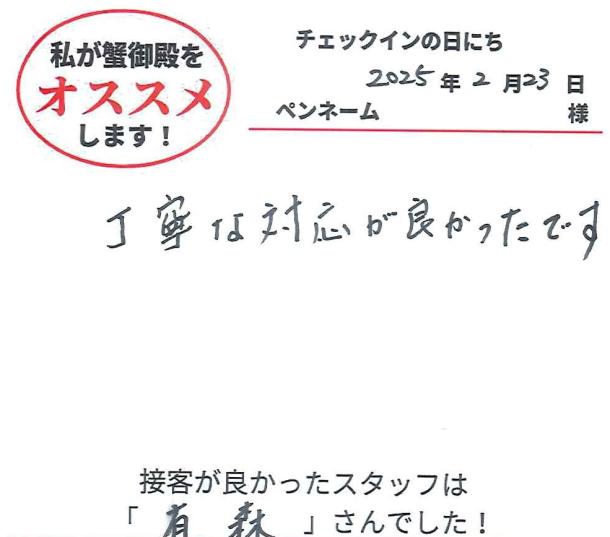 私が蟹御殿を
オススメ
します!
チェックインの日にち
2025年2月23日
ペンネーム 様
丁寧な対応が良かったです
接客が良かったスタッフは
「有森」さんでした!